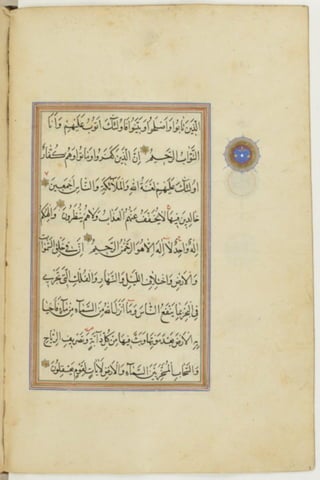 الَّذِينَ تَابُوا وَاَصْلَحُوا وَبَيَّنُوا فَاُولٰئِكَ اَتُوبُ عَلَيْهِمْ وَاَنَا
التَّوَّابُ الرَّحِيمُ اِنَّ الَّذِينَ كَفَرُوا وَمَاتُوا وَهُمْ كُفَّارٌ
اُولٰئِكَ عَلَيْهِمْ لَعْنَةُ اللّٰهِ وَالْمَلٰئِكَةِ وَالنَّاسِ اَجْمَعِينَ
خَالِدِينَ فِيهَا لَا يُخَفَّفُ عَنْهُمُ الْعَذَابُ وَلَا هُمْ يُنْظَرُونَ وَاِلٰهُكُمْ
اِلٰهٌ وَاحِدٌ لَا اِلٰهَ اِلَّا هُوَ الرَّحْمٰنُ الرَّحِيمُ اِنَّ فِي خَلْقِ السَّمٰوَاتِ
وَالْاَرْضِ وَاخْتِلَافِ الَّيْلِ وَالنَّهَارِ وَالْفُلْكِ الَّتِي تَجْرِي
فِي الْبَحْرِ بِمَا يَنْفَعُ النَّاسَ وَمَا اَنْزَلَ اللّٰهُ مِنَ السَّمَاءِ مِنْ مَاءٍ فَاَحْيَا
بِهِ الْاَرْضَ بَعْدَ مَوْتِهَا وَبَثَّ فِيهَا مِنْ كُلِّ دَابَّةٍ وَتَصْرِيفِ الرِّيَاحِ
وَالسَّحَابِ الْمُسَخَّرِ بَيْنَ السَّمَاءِ وَالْاَرْضِ لَاٰيَاتٍ لِقَوْمٍ يَعْقِلُونَ